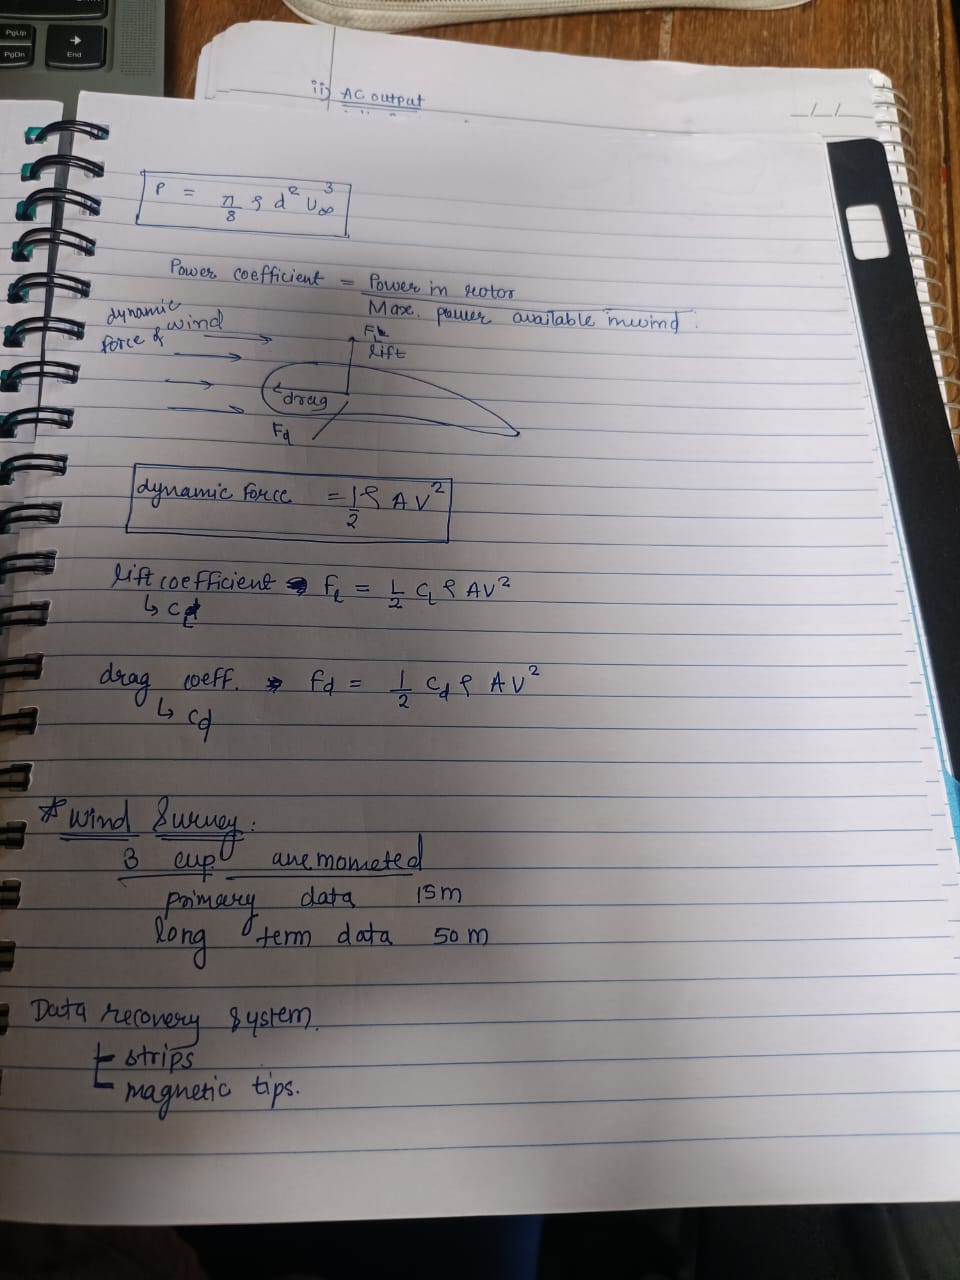 PgUp
PgDn
→
End
ii) AC output
P = π/8 ρ d² U∞³
Power coefficient = Power in rotor / Max. power available in wind.
dynamic
force of wind
FL
lift
drag
Fd
dynamic force = 1/2 ρ A V²
lift coefficient → FL = 1/2 CL ρ AV²
↳ CL
drag coeff. → Fd = 1/2 Cd ρ AV²
↳ Cd
* Wind Survey :
3 cup anemometed
primary data 15m
long term data 50m
Data recovery system.
strips
magnetic tips.